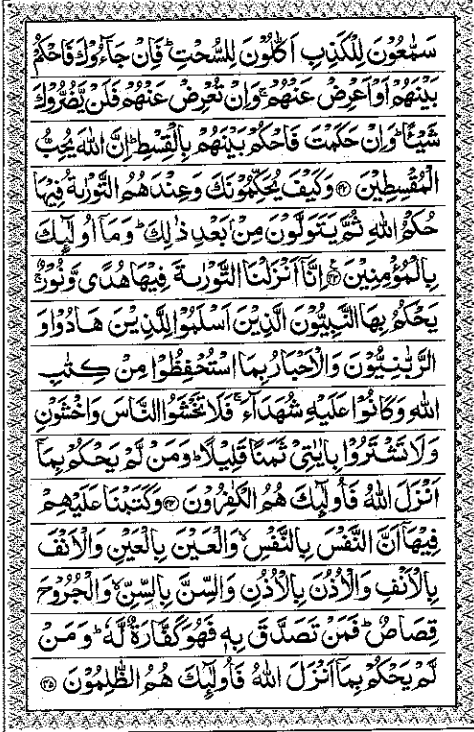 سَمّٰعُوۡنَ لِلۡكَذِبِ اَكّٰلُوۡنَ لِلسُّحۡتِ‌ؕ فَاِنۡ جَآءُوۡكَ فَاحۡكُمۡ
بَيۡنَهُمۡ اَوۡ اَعۡرِضۡ عَنۡهُمۡ‌ۚ وَاِنۡ تُعۡرِضۡ عَنۡهُمۡ فَلَنۡ يَّضُرُّوۡكَ
شَيۡـًٔـا‌ؕ وَاِنۡ حَكَمۡتَ فَاحۡكُمۡ بَيۡنَهُمۡ بِالۡقِسۡطِ‌ؕ اِنَّ اللّٰهَ يُحِبُّ
الۡمُقۡسِطِيۡنَ ۴۲ وَكَيۡفَ يُحَكِّمُوۡنَكَ وَعِنۡدَهُمُ التَّوۡرٰٮةُ فِيۡهَا
حُكۡمُ اللّٰهِ ثُمَّ يَتَوَلَّوۡنَ مِنۡۢ بَعۡدِ ذٰلِكَ‌ؕ وَمَاۤ اُولٰٓٮِٕكَ
بِالۡمُؤۡمِنِيۡنَ ۴۳ اِنَّاۤ اَنۡزَلۡنَا التَّوۡرٰٮةَ فِيۡهَا هُدًى وَّنُوۡرٌ‌ۚ
يَحۡكُمُ بِهَا النَّبِيُّوۡنَ الَّذِيۡنَ اَسۡلَمُوۡا لِلَّذِيۡنَ هَادُوۡا وَ
الرَّبّٰنِيُّوۡنَ وَالۡاَحۡبَارُ بِمَا اسۡتُحۡفِظُوۡا مِنۡ كِتٰبِ
اللّٰهِ وَكَانُوۡا عَلَيۡهِ شُهَدَآءَ‌‌ۚ فَلَا تَخۡشَوُا النَّاسَ وَاخۡشَوۡنِ
وَلَا تَشۡتَرُوۡا بِاٰيٰتِىۡ ثَمَنًا قَلِيۡلًا‌ؕ وَمَنۡ لَّمۡ يَحۡكُمۡ بِمَاۤ
اَنۡزَلَ اللّٰهُ فَاُولٰٓٮِٕكَ هُمُ الۡكٰفِرُوۡنَ ۴۴ وَكَتَبۡنَا عَلَيۡهِمۡ
فِيۡهَاۤ اَنَّ النَّفۡسَ بِالنَّفۡسِۙ وَالۡعَيۡنَ بِالۡعَيۡنِ وَالۡاَنۡفَ
بِالۡاَنۡفِ وَالۡاُذُنَ بِالۡاُذُنِ وَالسِّنَّ بِالسِّنِّۙ وَالۡجُرُوۡحَ
قِصَاصٌ‌ؕ فَمَنۡ تَصَدَّقَ بِهٖ فَهُوَ كَفَّارَةٌ لَّهٗ‌ؕ وَمَنۡ
لَّمۡ يَحۡكُمۡ بِمَاۤ اَنۡزَلَ اللّٰهُ فَاُولٰٓٮِٕكَ هُمُ الظّٰلِمُوۡنَ ۴۵